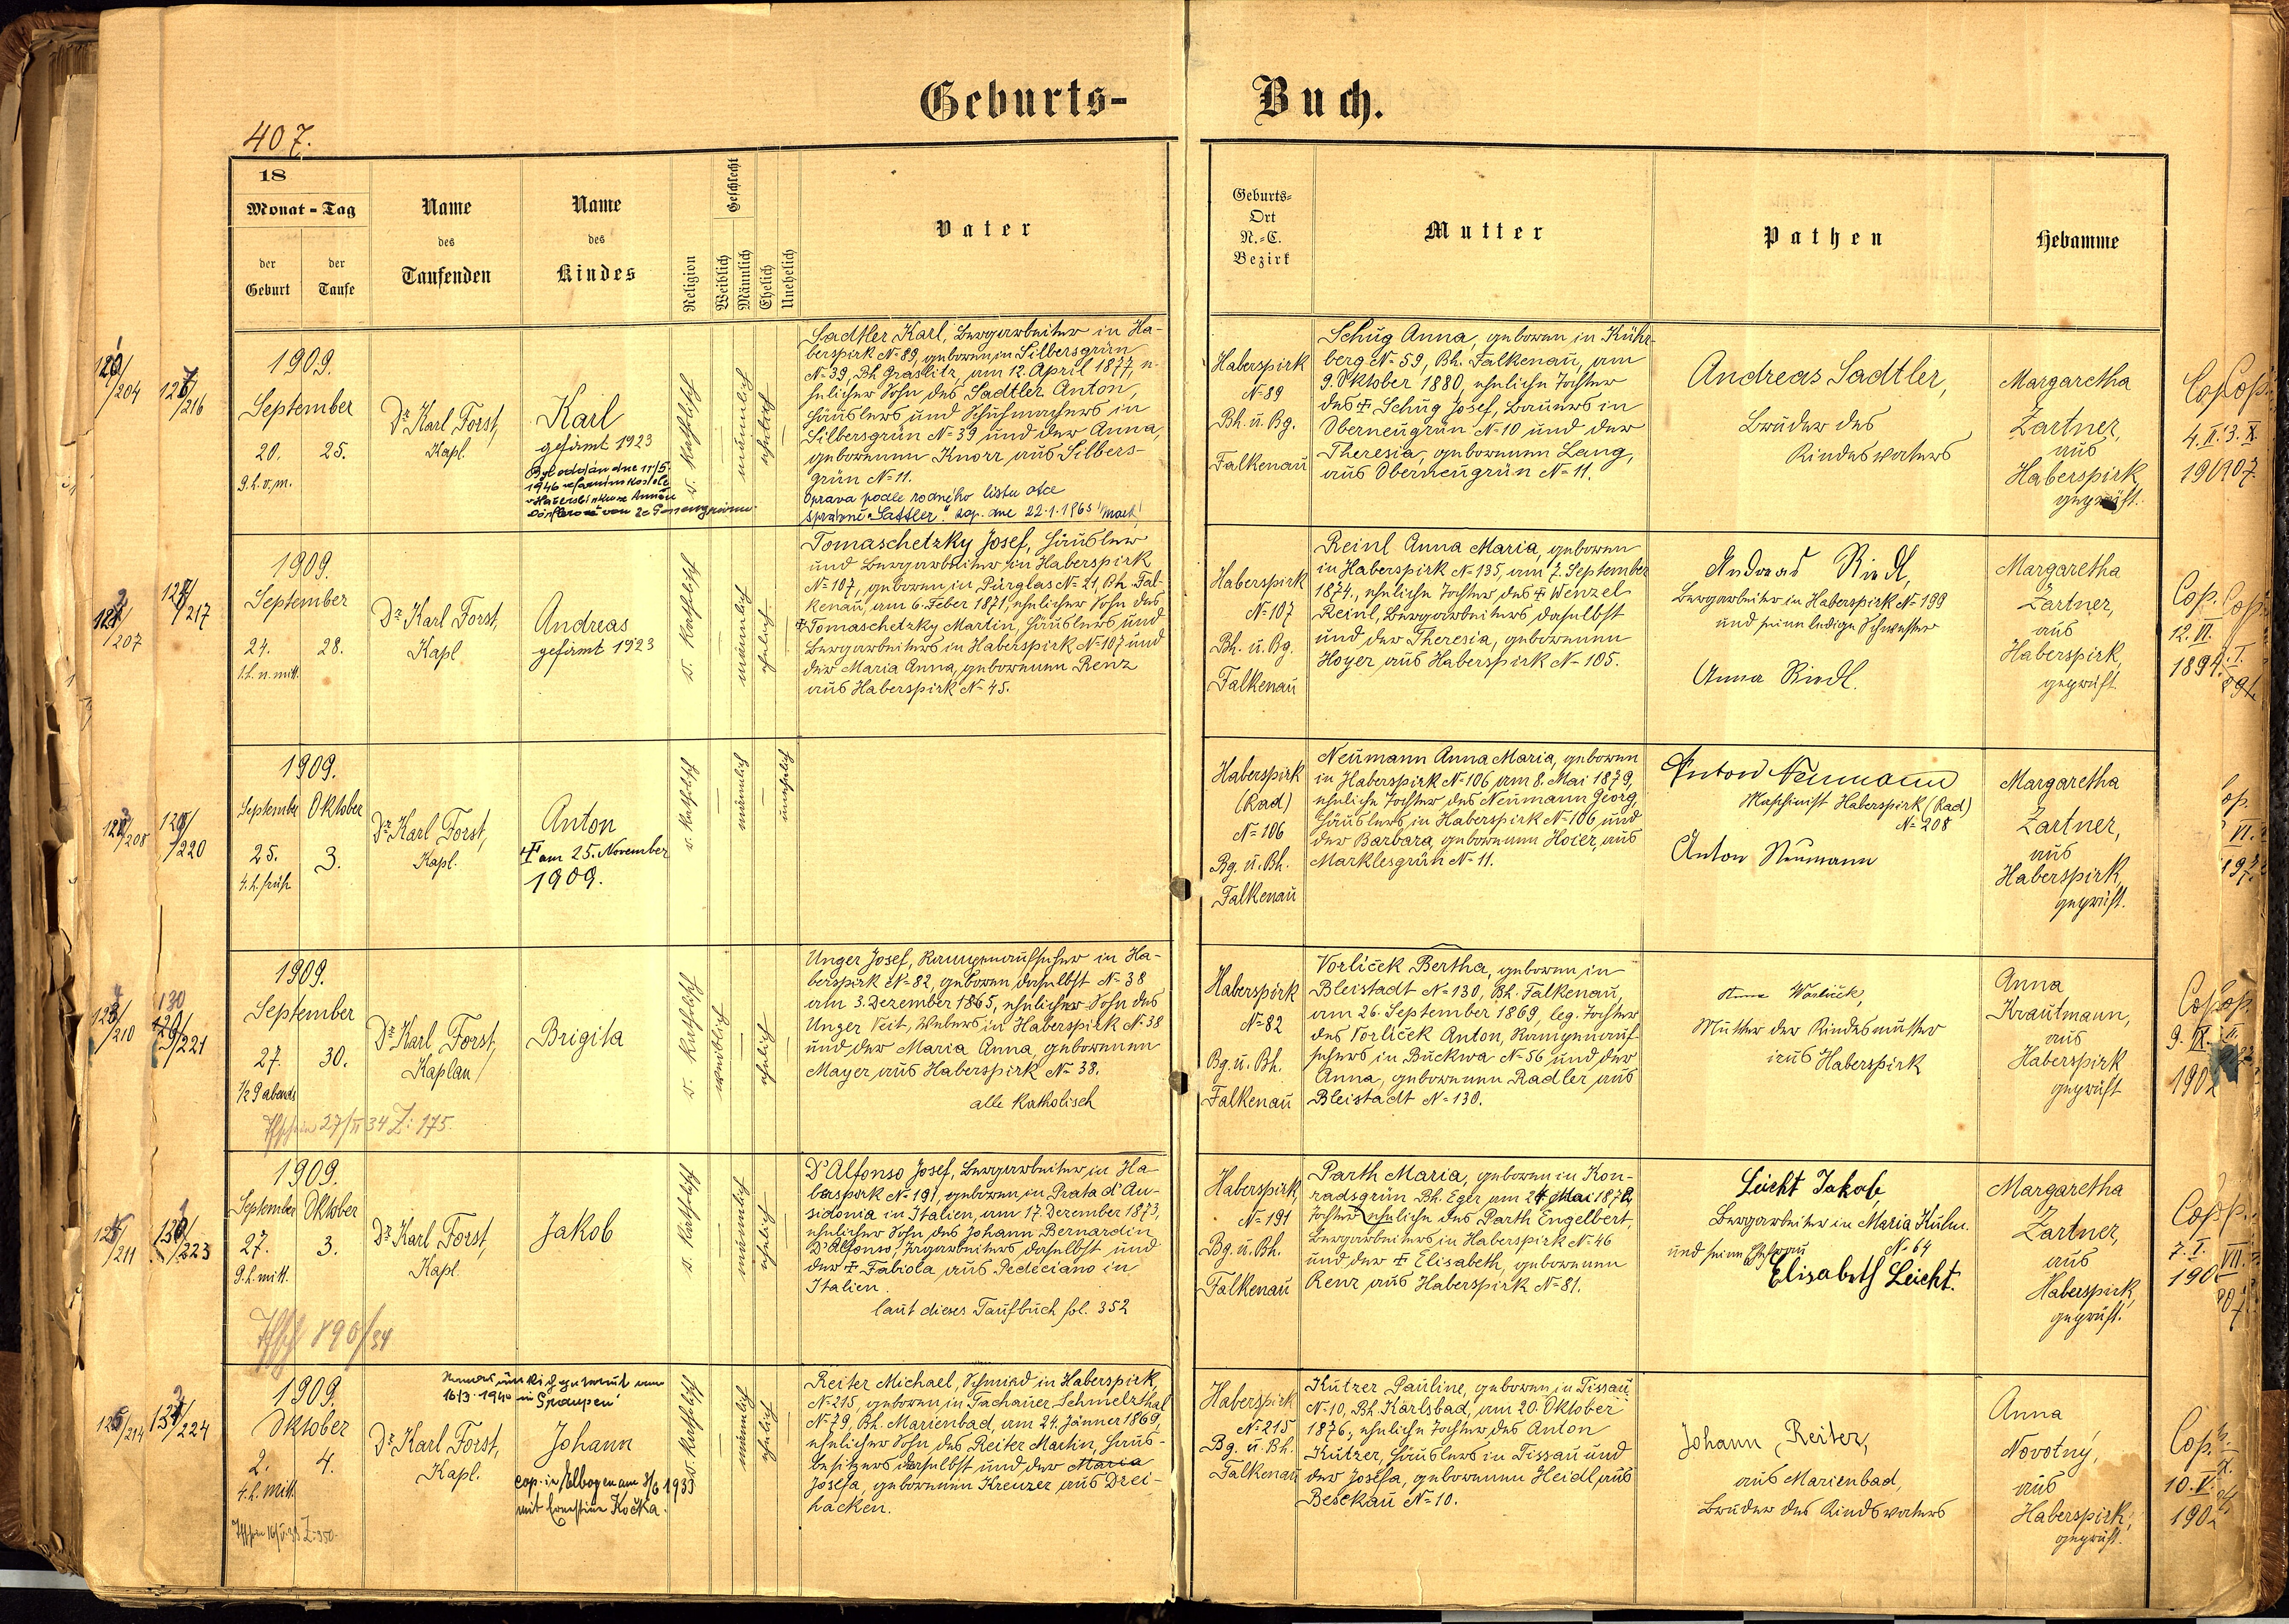 Geburts-Buch.
407.
18
Monat - Tag
der Geburt
der Taufe
Name des Taufenden
Name des Kindes
Religion
Geschlecht
Weiblich
Männlich
Ehelich
Unehelich
Vater
Geburts-Ort N.-C. Bezirk
Mutter
Pathen
Hebamme
1909.
September
20. 25.
9. h. v. m.
Dr. Karl Forst,
Kapl.
Karl
gefirmt 1923
r. katholisch
männlich
ehelich
Sadtler Karl, Bergarbeiter in Ha-
berspirk N=89, geboren in Silbersgrün
N=39, Bh. Graslitz, am 12. April 1877, e-
helicher Sohn des Sadtler Anton,
Häuslers und Schuhmachers in
Silbersgrün N=39 und der Anna,
geborenen Knorr aus Silbers-
grün N=11.
Oprava podle rodného listu otce
správně "Sattler". Zap. dne 22.1.1965
Haberspirk
N=89
Bh. u. Bg.
Falkenau
Schug Anna, geboren in Kühr-
berg N=59, Bh. Falkenau, am
9. Oktober 1880, eheliche Tochter
des † Schug Josef, Bauers in
Oberneugrün N=10 und der
Theresia, geborenen Lang,
aus Oberneugrün N=11.
Andreas Sadtler,
Bruder des
Kindesvaters
Margaretha
Zartner,
aus
Haberspirk,
geprüft.
1909.
September
24. 28.
1. h. n. mitt.
Dr. Karl Forst,
Kapl
Andreas
gefirmt 1923
r. katholisch
männlich
ehelich
Tomaschetzky Josef, Häusler
und Bergarbeiter in Haberspirk
N=107, geboren in Pürglas N=21 Bh. Fal-
kenau, am 6. Feber 1871, ehelicher Sohn des
† Tomaschetzky Martin, Häuslers und
Bergarbeiters in Haberspirk N=107 und
der Maria Anna, geborenen Renz
aus Haberspirk N=45.
Haberspirk
N=107
Bh. u. Bg.
Falkenau
Reinl Anna Maria, geboren
in Haberspirk N=135, am 7. September
1874, eheliche Tochter des † Wenzel
Reinl, Bergarbeiters daselbst
und der Theresia, geborenen
Hoyer aus Haberspirk N=105.
Andreas Riedl,
Bergarbeiter in Haberspirk N=199
und seine ledige Schwester
Anna Riedl.
Margaretha
Zartner,
aus
Haberspirk,
geprüft
Cop.
12. VI.
1894.
1909.
September Oktober
25. 3.
4. h. früh
Dr. Karl Forst,
Kapl.
Anton
† am 25. November
1909.
r. katholisch
männlich
unehelich
Haberspirk
(Rad)
N=106
Bg. u. Bh.
Falkenau
Neumann Anna Maria, geboren
in Haberspirk N=106 am 8. Mai 1879,
eheliche Tochter des Neumann Georg,
Häuslers in Haberspirk N=106 und
der Barbara, geborenen Hoier, aus
Marklesgrün N=11.
Anton Neumann
Maschinist Haberspirk (Rad)
N=208
Anton Neumann
Margaretha
Zartner,
aus
Haberspirk,
geprüft.
1909.
September
27. 30.
1/2 9 abends
Dr. Karl Forst,
Kaplan
Brigita
r. katholisch
weiblich
ehelich
Unger Josef, Rampenaufseher in Ha-
berspirk N=82, geboren daselbst N=38
am 3. Dezember 1865, ehelicher Sohn des
Unger Veit, Webers in Haberspirk N=38
und der Maria Anna, geborenen
Mayer aus Haberspirk N=38.
alle katholisch
Haberspirk
N=82
Bg. u. Bh.
Falkenau
Vorliček Bertha, geboren in
Bleistadt N=130, Bh. Falkenau,
am 26. September 1869, leg. Tochter
des Vorliček Anton, Rampenauf-
sehers in Buckwa N=56 und der
Anna, geborenen Radler aus
Bleistadt N=130.
Mutter der Kindesmutter
aus Haberspirk
Anna
Krautmann,
aus
Haberspirk
geprüft
1909.
September Oktober
27. 3.
9. h. mitt.
Dr. Karl Forst,
Kapl.
Jakob
r. katholisch
männlich
ehelich
D'Alfonso Josef, Bergarbeiter in Ha-
berspirk N=191, geboren in Prata d'An-
sidonia in Italien, am 17. Dezember 1873,
ehelicher Sohn des Johann Bernardin
D'Alfonso, daselbst und
der † Fabiola aus Pedeciano in
Italien.
laut dieses Taufbuch fol. 352
Haberspirk,
N=191
Bg. u. Bh.
Falkenau
Parth Maria, geboren in Kon-
radsgrün Bh. Eger am 24. Mai
Tochter eheliche des Parth Engelbert,
Bergarbeiters in Haberspirk N=46
und der † Elisabeth, geborenen
Renz aus Haberspirk N=81.
Leicht Jakob,
Bergarbeiter in Maria Kulm.
N=64
und seine Ehefrau
Elisabeth Leicht.
Margaretha
Zartner,
aus
Haberspirk,
geprüft.
1909.
Oktober
2. 4.
4. h. mitt.
Dr. Karl Forst,
Kapl.
Johann
cop. in Elbogen am
mit Ernestine Kočka.
r. katholisch
männlich
ehelich
Reiter Michael, Schmied in Haberspirk,
N=215, geboren in Tachauer Schmelzthal
N=79, Bh. Marienbad, am 24. Jänner 1869,
ehelicher Sohn des Reiter Martin, Haus-
besitzers daselbst und der Maria
Josefa, geborenen Kreuzer aus Drei-
hacken.
Haberspirk
N=215
Bg. u. Bh.
Falkenau
Kutzer Pauline, geboren in Tissau
N=10, Bh. Karlsbad, am 20. Oktober
1876, eheliche Tochter des Anton
Kutzer, Häuslers in Tissau und
der Josefa, geborenen Heidl, aus
Beschkau N=10.
Johann Reiter,
aus Marienbad,
Bruder des Kindsvaters
Anna
Novotný,
aus
Haberspirk,
geprüft.